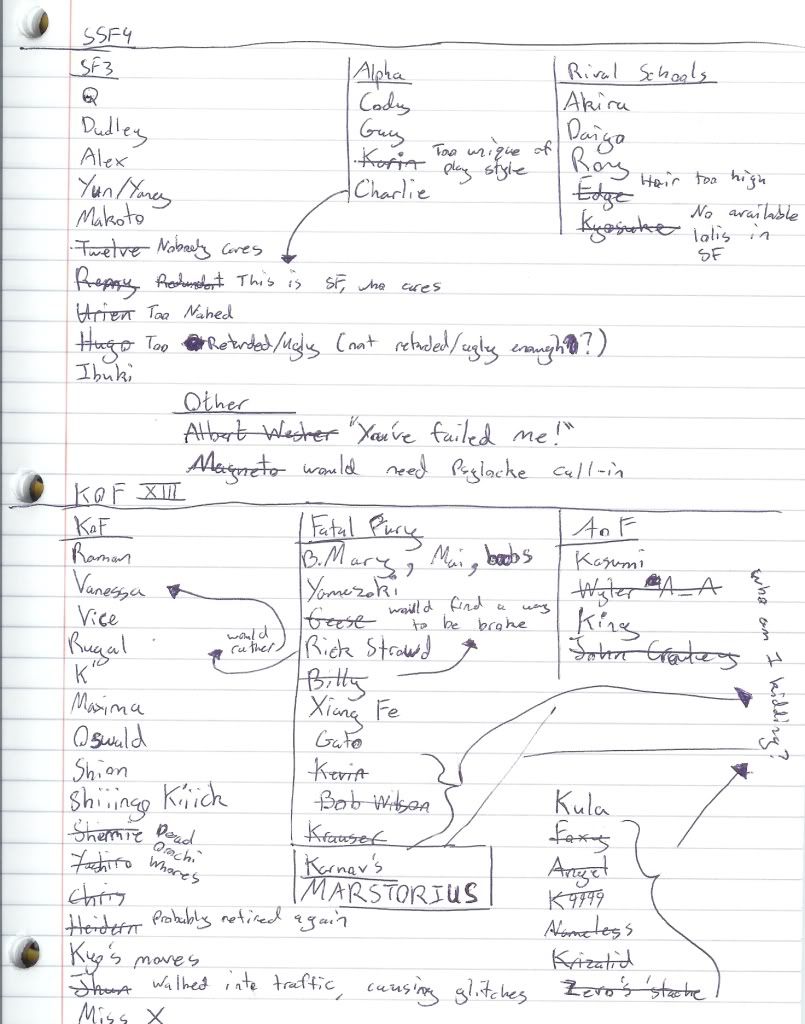 SSF4
SF3
Q
Dudley
Alex
Yun/Yang
Makoto
Twelve Nobody cares
Remy Redundant This is SF, who cares
Urien Too Naked
Hugo Too Retarded/Ugly (not retarded/ugly enough?)
Ibuki
Alpha
Cody
Guy
Karin Too unique of
play style
Charlie
Rival Schools
Akira
Daigo
Roy
Edge Hair too high
Kyosuke No available
lolis in
SF
Other
Albert Wesker "You've failed me!"
Magneto would need Psylocke call-in
KOF XIII
KoF
Ramon
Vanessa
Vice
Rugal
would
rather
K'
Maxima
Oswald
Shion
Shiiingo Kiiick
Shermie Dead
Orochi
Yashiro Whores
Chris
Heidern probably retired again
Kyo's moves
Jhun walked into traffic, causing glitches
Miss X
Fatal Fury
B.Mary, Mai, boobs
Yamazaki
Geese would find a way
to be broke
Rick Strowd
Billy
Xiang Fe
Gato
Kevin
Bob Wilson
Krauser
Karnov's
MARSTORIUS
AoF
Kasumi
Wyler A_A
King
John Crawley
who am I kidding?
Kula
Foxy
Angel
K9999
Nameless
Krizalid
Zero's 'stache